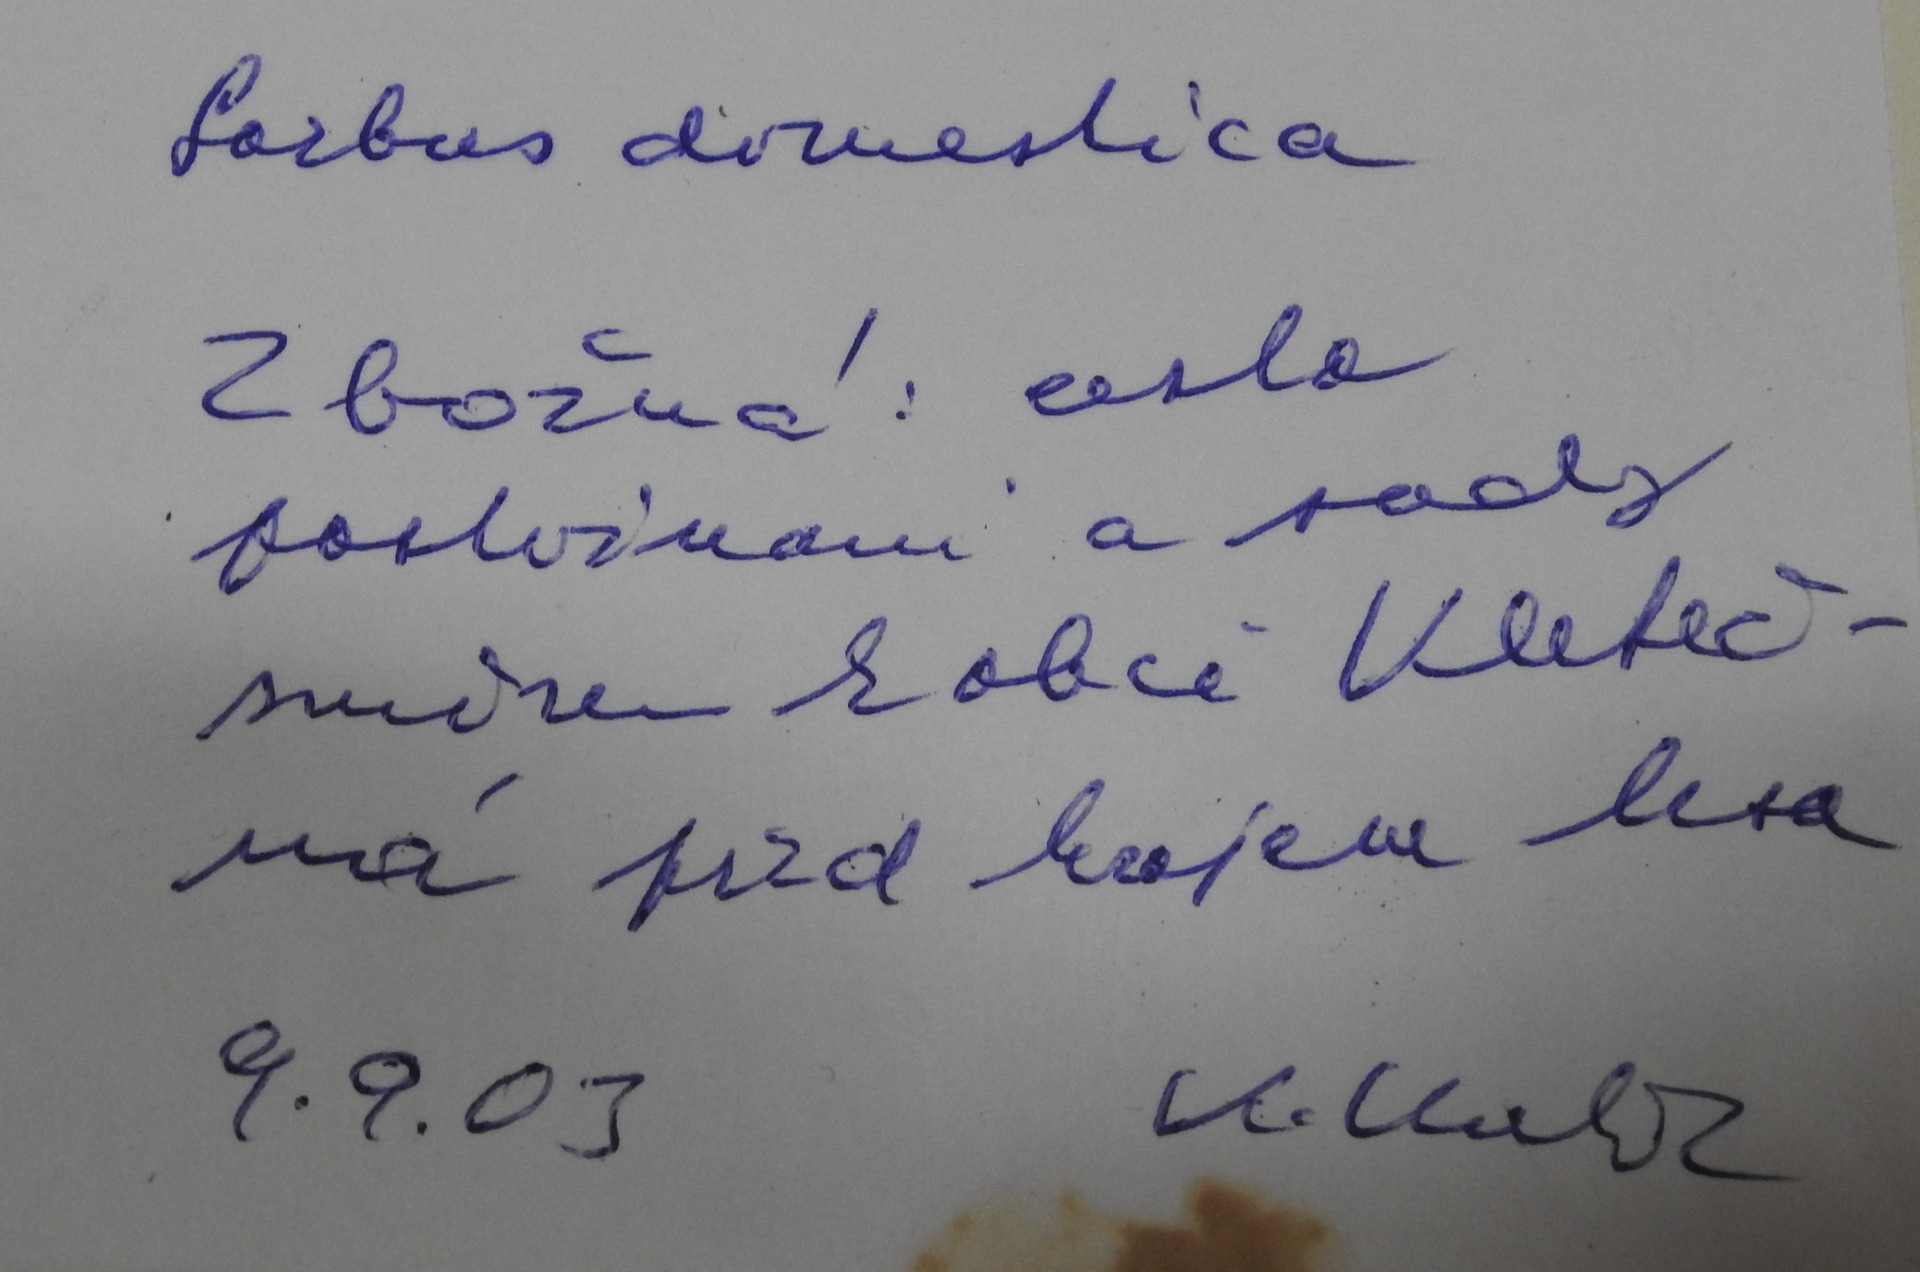 Sorbus domestica
Zbožná: cesta
pastvinami a sady
směrem k obci Kleteč-
ná před krajem lesa
9.9.03